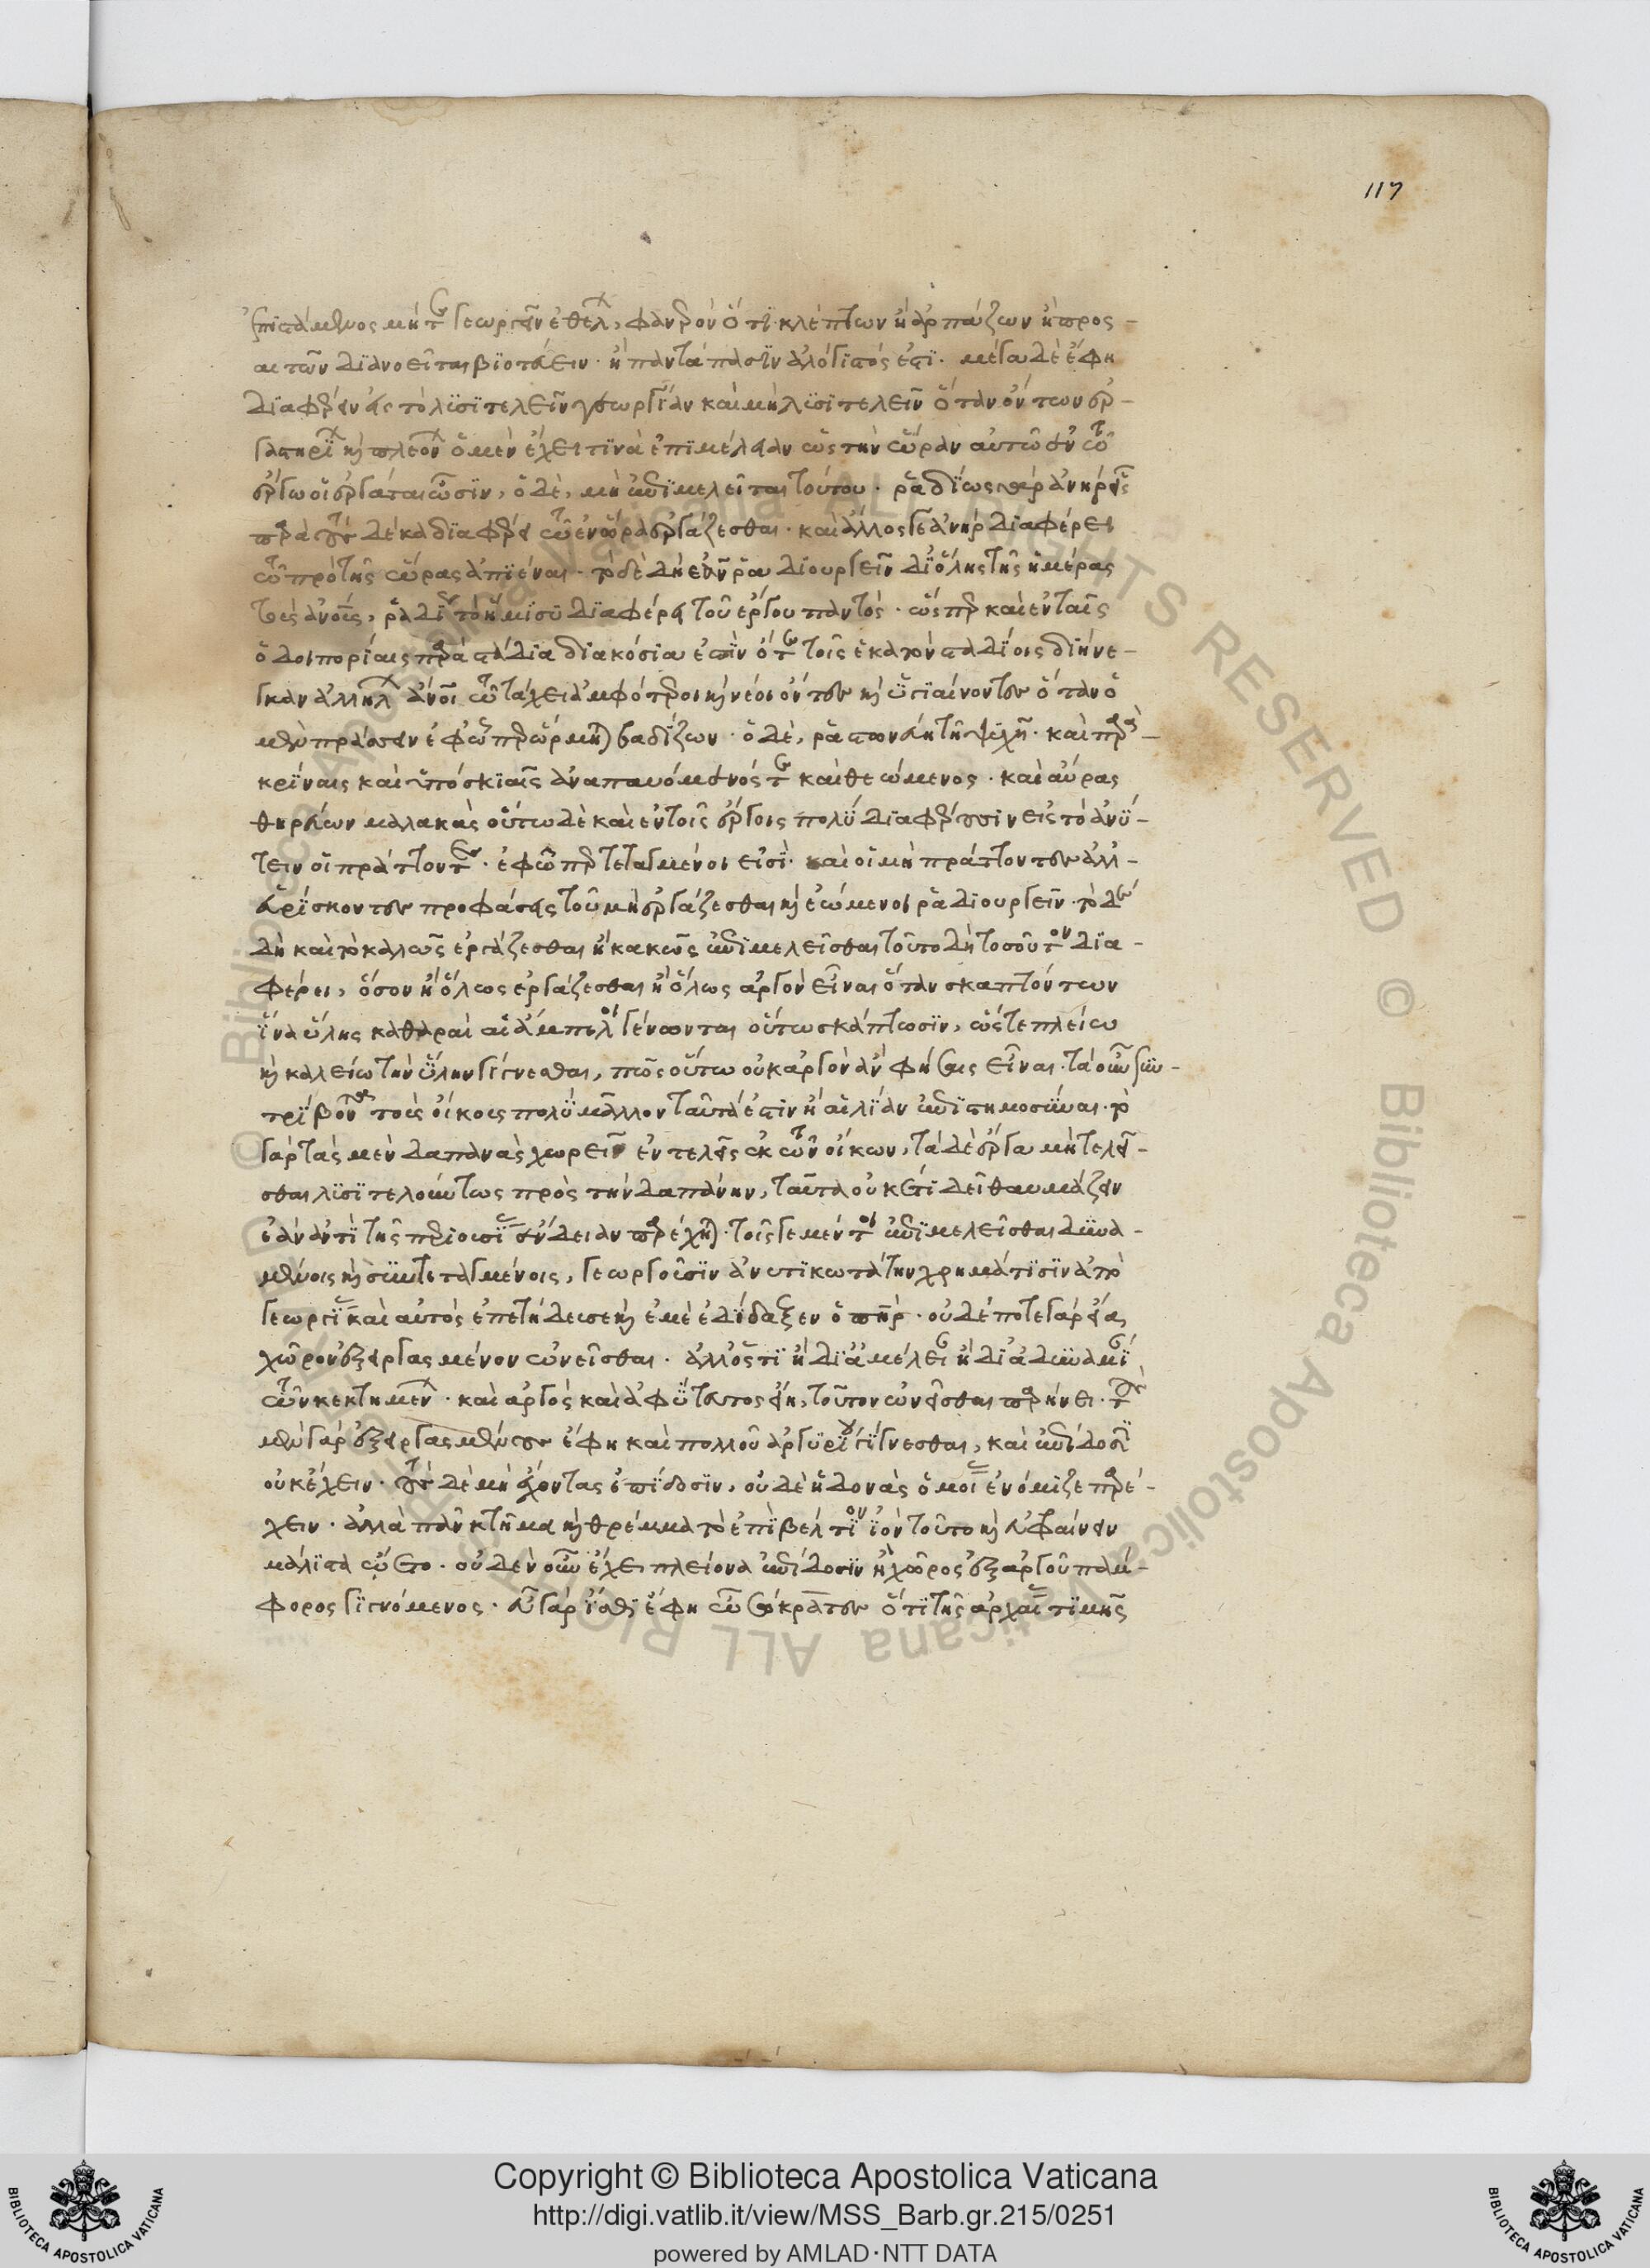 117
ἐπιστάμενος μήτε γεωργεῖν ἐθέλει, φανερὸν ὅτι κλέπτων ἢ ἁρπάζων ἢ προς-
αιτῶν διανοεῖται βιοτεύειν. ἢ παντάπασιν ἀλόγιστός ἐστι. μέγα δὲ ἔφη
διαφέρειν εἰς τὸ λυσιτελεῖν γεωργίαν καὶ μὴ λυσιτελεῖν ὅταν ὄντων ἐρ-
γαστήρων καὶ πλεόνων ὁ μὲν ἔχει τινὰ ἐπιμέλειαν ὡς τὴν ὥραν αὐτῷ ἐν τῷ
ἔργῳ οἱ ἐργάται ὦσιν, ὁ δὲ, μὴ ἐπιμελεῖται τούτου. ῥαδίως γὰρ ἀνὴρ εἷς
παρὰ τοὺς δέκα διαφέρει τῷ ἐν ὥρᾳ ἐργάζεσθαι. καὶ ἄλλος γε ἀνὴρ διαφέρει
τῷ πρὸ τῆς ὥρας ἀπιέναι. τὸ δὲ δὴ ἐᾶν ῥᾳδιουργεῖν δι' ὅλης τῆς ἡμέρας
τοὺς ἀνθρώπους, ῥᾳδίως τὸ ἥμισυ διαφέρει τοῦ ἔργου παντός. ὥσπερ καὶ ἐν ταῖς
ὁδοιπορίαις παρὰ στάδια διακόσια ἔστιν ὅτε τοῖς ἑκατὸν σταδίοις διήνε-
γκαν ἀλλήλων ἄνθρωποι τῷ τάχει ἀμφότεροι καὶ νέοι ὄντες καὶ ὑγιαίνοντες ὅταν ὁ
μὲν πράττειν ἐφ' ᾧπερ ὥρμηται βαδίζων. ὁ δὲ, ῥᾳστωνεύῃ τῇ ψυχῇ. καὶ παρὰ
κρήναις καὶ ὑπὸ σκιαῖς ἀναπαυόμενός τε καὶ θεώμενος. καὶ αὔρας
θηρεύων μαλακὰς οὕτω δὲ καὶ ἐν τοῖς ἔργοις πολὺ διαφέρουσιν εἰς τὸ ἀνύ-
τειν οἱ πράττοντες. ἐφ' ᾧπερ τεταγμένοι εἰσί. καὶ οἱ μὴ πράττοντες ἀλλ'
εὑρίσκοντες προφάσεις τοῦ μὴ ἐργάζεσθαι καὶ ἐώμενοι ῥᾳδιουργεῖν. τὸ δὲ
δὴ καὶ τὸ καλῶς ἐργάζεσθαι ἢ κακῶς ἐπιμελεῖσθαι τοῦτο δὴ τοσοῦτον δια-
φέρει, ὅσον ἢ ὅλως ἐργάζεσθαι ἢ ὅλως ἀργὸν εἶναι ὅταν σκαπτόντων
ἵνα ὕλης καθαραὶ αἱ ἄμπελοι γένωνται οὕτω σκάπτωσιν, ὥστε πλείω
καὶ καλείω τὴν ὕλην γίγνεσθαι, πῶς οὕτω οὐκ ἀργὸν ἂν φήσαις εἶναι. τὰ οὖν συν-
τρίβοντα τοὺς οἴκους πολὺ μᾶλλον ταῦτά ἐστιν ἢ αἱ λίαν ἐπιστημοσύναι. τὸ
γὰρ τὰς μὲν δαπάνας χωρεῖν ἐντελεῖς ἐκ τῶν οἴκων, τὰ δὲ ἔργα μὴ τελεῖ-
σθαι λυσιτελούντως πρὸς τὴν δαπάνην, ταῦτα οὐκέτι δεῖ θαυμάζειν
ἐὰν ἀντὶ τῆς περιουσίας ἔνδειαν παρέχηται. τοῖς γε μέντοι ἐπιμελεῖσθαι δυνα-
μένοις καὶ συντεταγμένοις, γεωργοῦσιν ἀνυτικωτάτην χρημάτισιν ἀπὸ
γεωργίας καὶ αὐτὸς ἐπετήδευσε καὶ ἐμὲ ἐδίδαξεν ὁ πατήρ. οὐδέποτε γὰρ εἴα
χῶρον ἐξειργασμένον ὠνεῖσθαι. ἀλλ' ὅστις ἢ δι' ἀμέλειαν ἢ δι' ἀδυναμίαν
τῶν κεκτημένων. καὶ ἀργὸς καὶ ἀφύτευτος εἴη, τοῦτον ὠνεῖσθαι παρήνει. τοὺς
μὲν γὰρ ἐξειργασμένους ἔφη καὶ πολλοῦ ἀργυρίου γίγνεσθαι, καὶ ἐπίδοσιν
οὐκ ἔχειν. τοὺς δὲ μὴ ἔχοντας ἐπίδοσιν, οὐδὲ ἡδονὰς ὁμοίας ἐνόμιζε παρέ-
χειν. ἀλλὰ πᾶν κτῆμα καὶ θρέμμα τὸ ἐπὶ βέλτιον ἰὸν τοῦτο καὶ εὐφραίνειν
μάλιστα ᾤετο. οὐδὲν οὖν ἔχει πλείονα ἐπίδοσιν ἢ χῶρος ἐξ ἀργοῦ πάμ-
φορος γιγνόμενος. εὖ γὰρ ἴσθι ἔφη ὦ Σώκρατες ὅτι τῆς ἀρχαίας τιμῆς
Copyright © Biblioteca Apostolica Vaticana
http://digi.vatlib.it/view/MSS_Barb.gr.215/0251
powered by AMLAD·NTT DATA